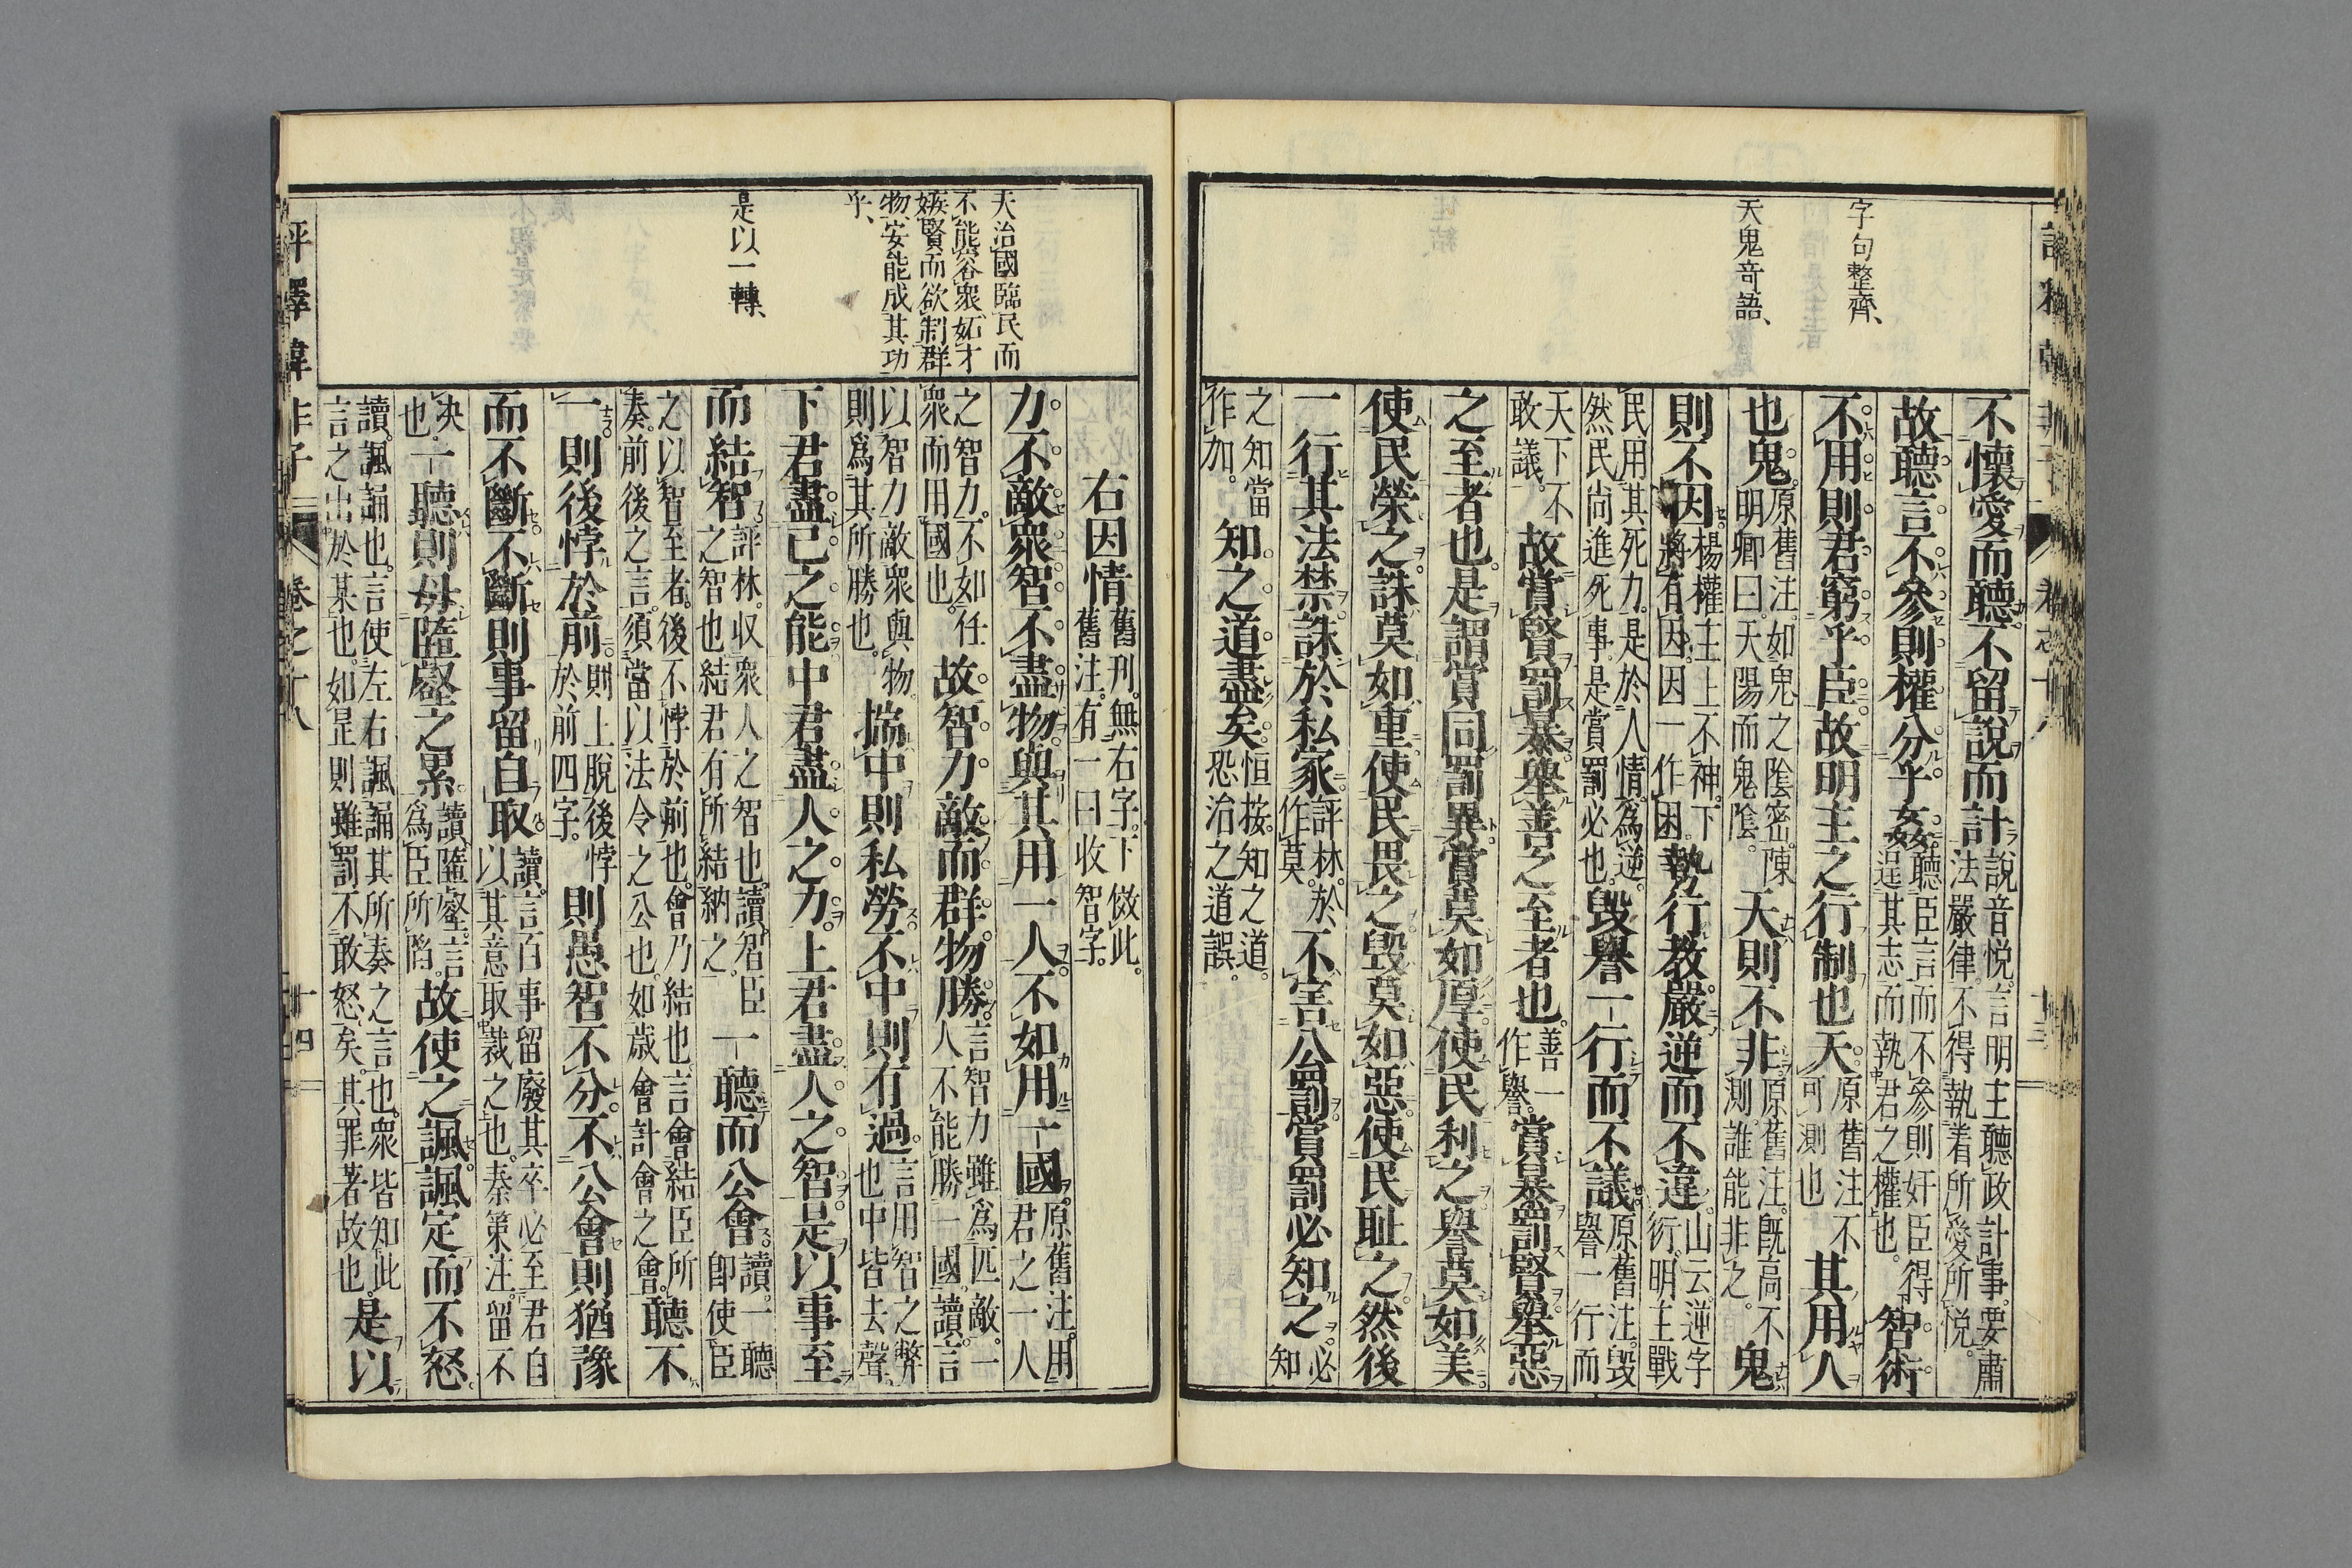 字句整齊、
天鬼奇語、
不懷愛而聽不留說而計說音悅。言明主聽政計事。要肅
法嚴律。不得執着所愛所悅。
故聽言不參則權分乎姦聽臣言而不參則奸臣得
逞其志而執君之權也。智術
不用則君窮乎臣故明主之行制也天原舊注。不
可測也其用人
也鬼原舊注。如鬼之陰密。陳
明卿曰。天陽而鬼陰。天則不非原舊注。既高不
測誰能非之。鬼
則不因楊權。主上不神。下
將有因。因一作困。執行教嚴逆而不違山云。逆字
衍。明主戰
民用其死力。是於人情。爲逆。
然民尚進死事。是賞罰必也。毀譽一行而不議原舊注。毀
譽一行而
天下不
敢議。故賞賢罰暴舉善之至者也善一
作譽。賞暴罰賢舉惡
之至者也是謂賞同罰異賞莫如厚使民利之譽莫如美
使民榮之誅莫如重使民畏之毀莫如惡使民恥之然後
一行其法禁誅於私家評林。於
作莫。不害公罰賞罰必知之必
知
之知當
作加。知之道盡矣恒按。知之道。
恐治之道誤。
夫治國臨民而
不能容衆妬才
嫉賢而欲制群
物安能成其功
乎、
是以一轉、
右因情舊刊。無右字。下倣此。
舊注。有一曰收智字。
力不敵衆智不盡物與其用一人不如用一國原舊注。用
君之一人
之智力。不如任
衆而用國也。故智力敵而群物勝言智力雖爲匹敵。一
人不能勝一國。讀。言
以智力敵衆與物。
則爲其所勝也。揣中則私勞不中則有過言用智之弊
也中皆去聲。
下君盡己之能中君盡人之力上君盡人之智是以事至
而結智評林。収衆人之智也。讀。智臣
之智也。結君有所結納之。一聽而公會讀。一聽
卽使臣
之以智至者。後不悖於前也。會乃結也。言會結臣所
奏。前後之言。須當以法令之公也。如歲會計會之會。聽不
一則後悖於前則上脫後悖
於前四字。則愚智不分不公會則猶豫
而不斷不斷則事留自取讀。言百事留廢其卒必至君自
以其意取裁之也。秦策注。留不
決
也。一聽則毋隨壑之累讀。隨壑。言
爲臣所陷。故使之諷諷定而不怒
讀。諷誦也。言使左右諷誦其所奏之言也。衆皆知此
言之出於某也。如是則雖罰不敢怒矣。其罪著故也。是以
評釋韓非子 卷之十八 十四